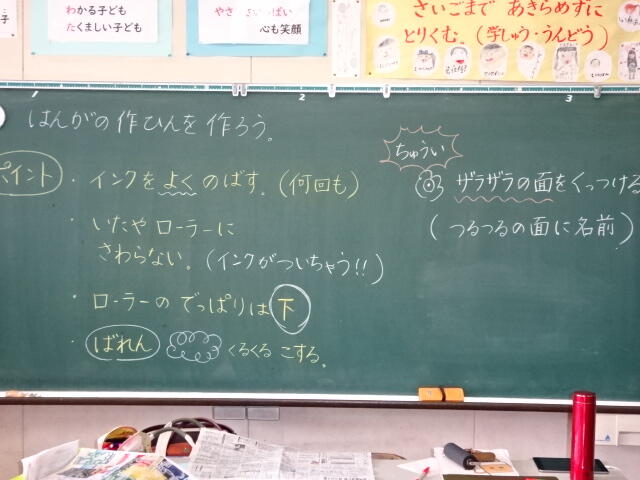 わかる子ども
たくましい子ども
心も笑顔
さいごまで あきらめずに
とりくむ。(学しゅう・うんどう)
1
2
3
はんがの作ひんを作ろう。
ポイント
・インクをよくのばす。(何回も)
・いたやローラーに
さわらない。(インクがついちゃう!!)
・ローラーのでっぱりは下
・ばれん くるくるこする。
ちゅうい
ザラザラの面をくっつける
(つるつるの面に名前)